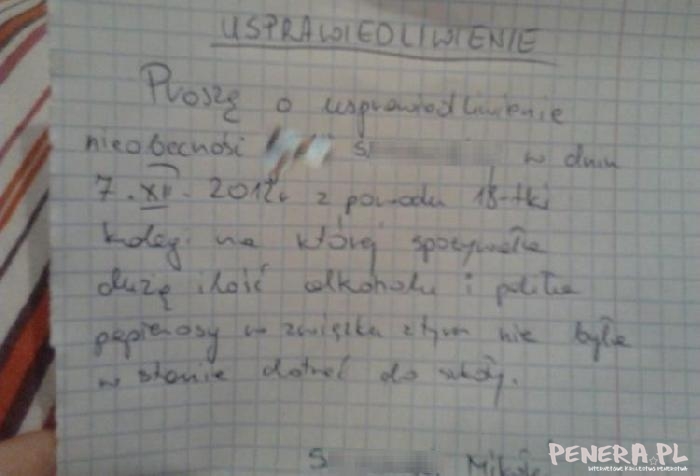 USPRAWIEDLIWIENIE
Proszę o usprawiedliwienie
nieobecności S w dniu
7.XII.2012r z powodu 18-tki
kolegi na której spożywała
dużą ilość alkoholu i paliła
papierosy w związku z tym nie była
w stanie dotrzeć do szkoły.
S
PENERA.PL
INTERNETOWE KRÓLESTWO PENERSTWA